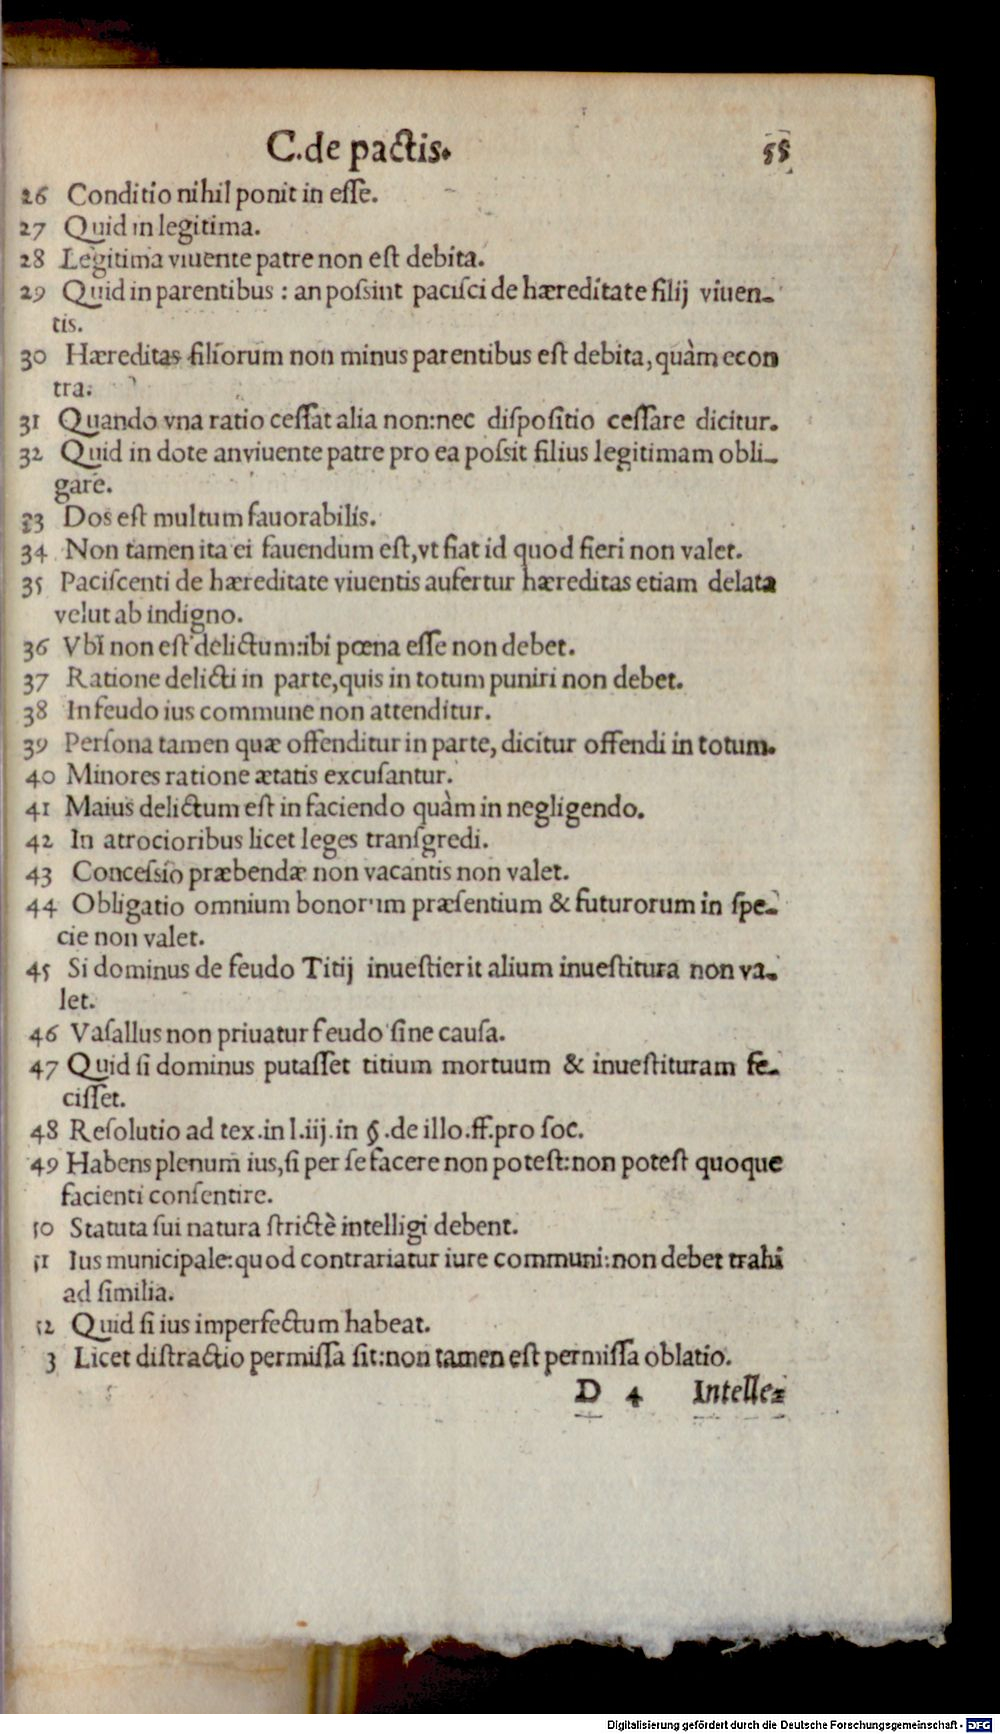 C.de pactis. 55
26 Conditio nihil ponit in eſſe.
27 Quid in legitima.
28 Legitima viuente patre non eſt debita.
29 Quid in parentibus : an poſsint paciſci de hæreditate filij viuen-
tis.
30 Hæreditas filiorum non minus parentibus eſt debita, quàm econ
tra.
31 Quando vna ratio ceſſat alia non:nec diſpoſitio ceſſare dicitur.
32 Quid in dote anviuente patre pro ea poſsit filius legitimam obli-
gare.
33 Dos eſt multum fauorabilis.
34 Non tamen ita ei fauendum eſt,vt fiat id quod fieri non valet.
35 Paciſcenti de hæreditate viuentis aufertur hæreditas etiam delata
velut ab indigno.
36 VbI non eſt delictum:ibi pœna eſſe non debet.
37 Ratione delicti in parte,quis in totum puniri non debet.
38 In feudo ius commune non attenditur.
39 Perſona tamen quæ offenditur in parte, dicitur offendi in totum.
40 Minores ratione ætatis excuſantur.
41 Maius delictum eſt in faciendo quàm in negligendo.
42 In atrocioribus licet leges tranſgredi.
43 Conceſsio præbendæ non vacantis non valet.
44 Obligatio omnium bonorum præſentium & futurorum in ſpe-
cie non valet.
45 Si dominus de feudo Titij inueſtierit alium inueſtitura non va-
let.
46 Vaſallus non priuatur feudo ſine cauſa.
47 Quid ſi dominus putaſſet titium mortuum & inueſtituram fe-
ciſſet.
48 Reſolutio ad tex.in l.iij.in §.de illo.ff.pro ſoc.
49 Habens plenum ius,ſi per ſe facere non poteſt:non poteſt quoque
facienti conſentire.
50 Statuta ſui natura ſtrictè intelligi debent.
51 Ius municipale:quod contrariatur iure communi:non debet trahi
ad ſimilia.
52 Quid ſi ius imperfectum habeat.
3 Licet diſtractio permiſſa ſit:non tamen eſt permiſſa oblatio.
D 4 Intelle-
Digitalisierung gefördert durch die Deutsche Forschungsgemeinschaft - DFG